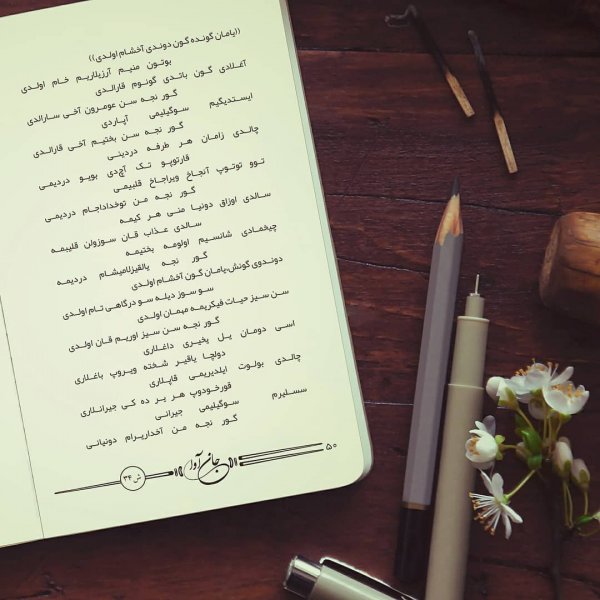 ((یامان گونده گون دوندی آخشام اولدی))
بوتون منیم آرزیلاریم خام اولدی
آغلادی گون باتدی گونوم قارالدی
گور نجه سن عومرون آخی سارالدی
ایستدیگیم سوگیلیمی آپاردی
گور نجه سن بختیم آخی قارالدی
چالدی زامان هر طرفه دردینی
قارتوپو تک آچدی بویو دردیمی
توو توتوپ آنجاخ ویراجاخ قلبیمی
گور نجه من توخداداجام دردیمی
سالدی اوزاق دونیا منی هر کیمه
سالدی عذاب قان سوزولن قلبیمه
چیخمادی شانسیم اولومه بختیمه
گور نجه یالقیزلامیشام دردیمه
دوندوی گونش،یامان گون آخشام اولدی
سو سوز دیله سو درگاهی تام اولدی
سن سیز حیات فیکریمه مهمان اولدی
گور نجه سن سیز اوریم قان اولدی
اسی دومان یل یخیری داغلاری
دولچا یاقیر شخته ویروپ باغلاری
چالدی بولوت ایلدیریمی قاپلاری
قورخودوپ هر بر ده کی جیرانلاری
سسلیرم سوگیلیمی جیرانی
گور نجه من آختاریرام دونیانی
۵۰
جان آوا
ش ۳۴